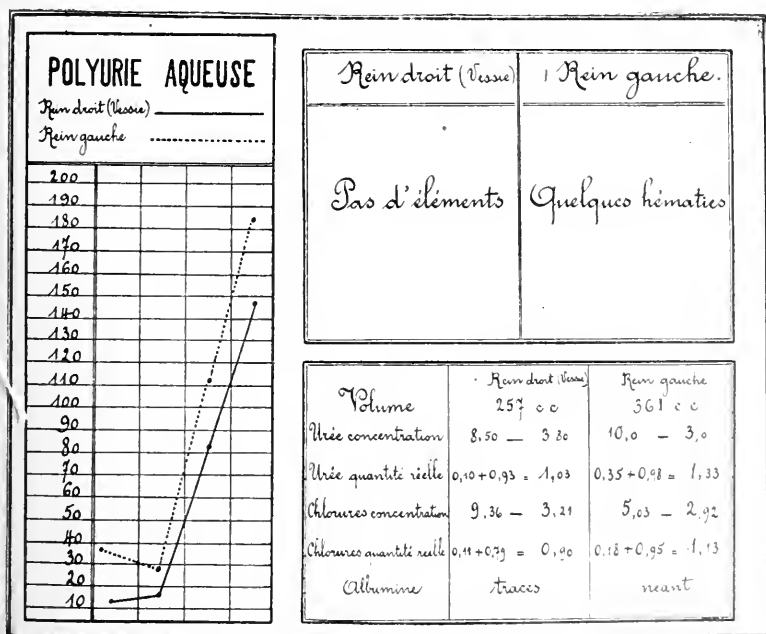 POLYURIE AQUEUSE
Rein droit (Vessie)
Rein gauche
200
190
180
170
160
150
140
130
120
110
100
90
80
70
60
50
40
30
20
10
Rein droit (Vessie) Rein gauche.
Pas d'éléments Quelques hématies
Rein droit (Vessie) Rein gauche
Volume 257 c c 361 c c
Urée concentration 8,50 — 3 80 10,0 — 3,0
Urée quantité réelle 0,10+0,93 = 1,03 0,35+0,98 = 1,33
Chlorures concentration 9,36 — 3,21 5,03 — 2,92
Chlorures quantité réelle 0,11+0,79 = 0,90 0,18+0,95 = 1,13
Albumine traces neant